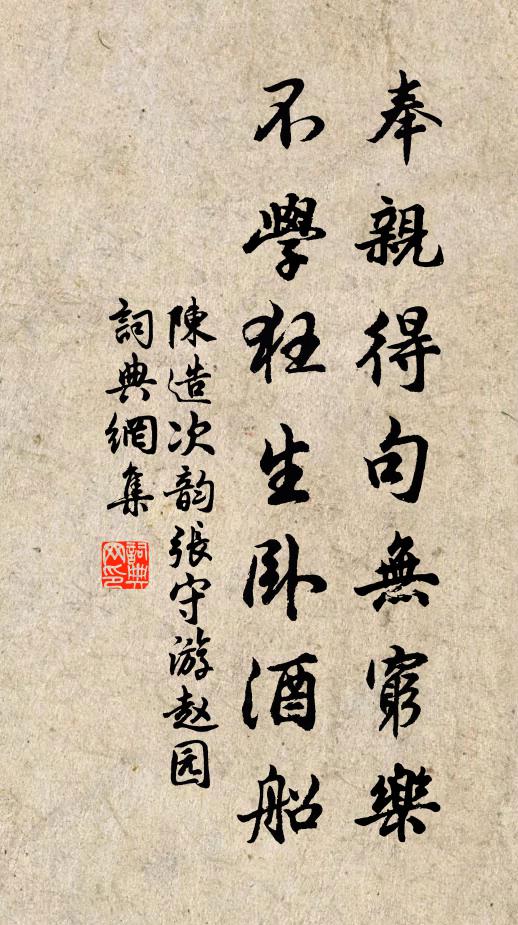 奉親得句無窮樂
不學狂生臥酒船
陳造次韵張守游赵园
詞典網集
詞典网印